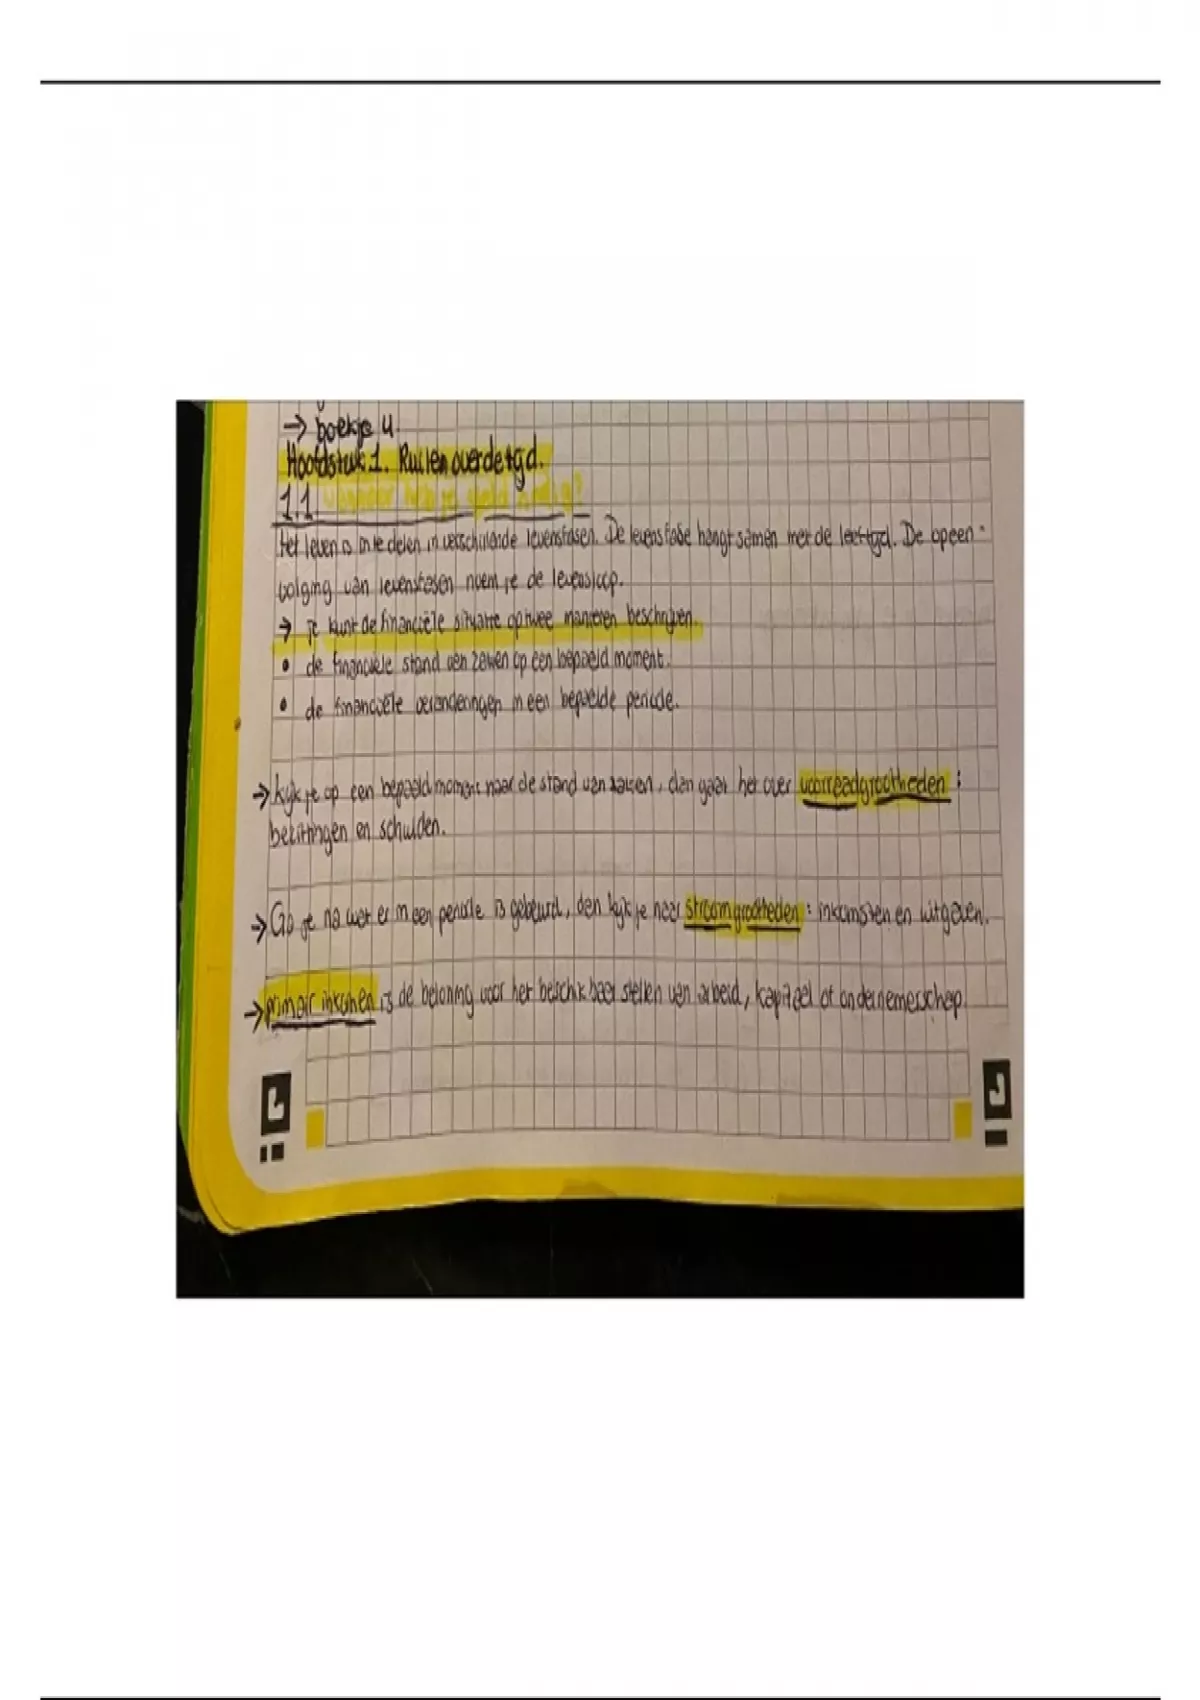 → boekje 4.
Hoofdstuk 1. Ruilen over de tijd.
1.1 Wanneer heb je geld nodig?
Het leven is in te delen in verschillende levensfasen. De levensfase hangt samen met de leeftijd. De opeen-
volging van levensfasen noem je de levensloop.
→ je kunt de financiële situatie op twee manieren beschrijven.
• de financiële stand van zaken op een bepaald moment.
• de financiële veranderingen in een bepaalde periode.
→ Kijk je op een bepaald moment naar de stand van zaken, dan gaat het over voorraadgrootheden:
bezittingen en schulden.
→ Ga je na wat er in een periode is gebeurd, dan kijk je naar stroomgrootheden: inkomsten en uitgaven.
→ primair inkomen is de beloning voor het beschikbaar stellen van arbeid, kapitaal of ondernemerschap.